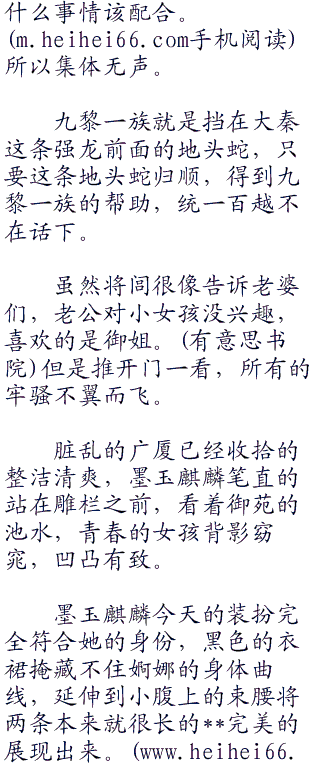 什么事情该配合。
(m.heihei66.com手机阅读)
所以集体无声。
九黎一族就是挡在大秦
这条强龙前面的地头蛇，只
要这条地头蛇归顺，得到九
黎一族的帮助，统一百越不
在话下。
虽然将闾很像告诉老婆
们，老公对小女孩没兴趣，
喜欢的是御姐。(有意思书
院)但是推开门一看，所有的
牢骚不翼而飞。
脏乱的广厦已经收拾的
整洁清爽，墨玉麒麟笔直的
站在雕栏之前，看着御苑的
池水，青春的女孩背影窈
窕，凹凸有致。
墨玉麒麟今天的装扮完
全符合她的身份，黑色的衣
裙掩藏不住婀娜的身体曲
线，延伸到小腹上的束腰将
两条本来就很长的**完美的
展现出来。(www.heihei66.